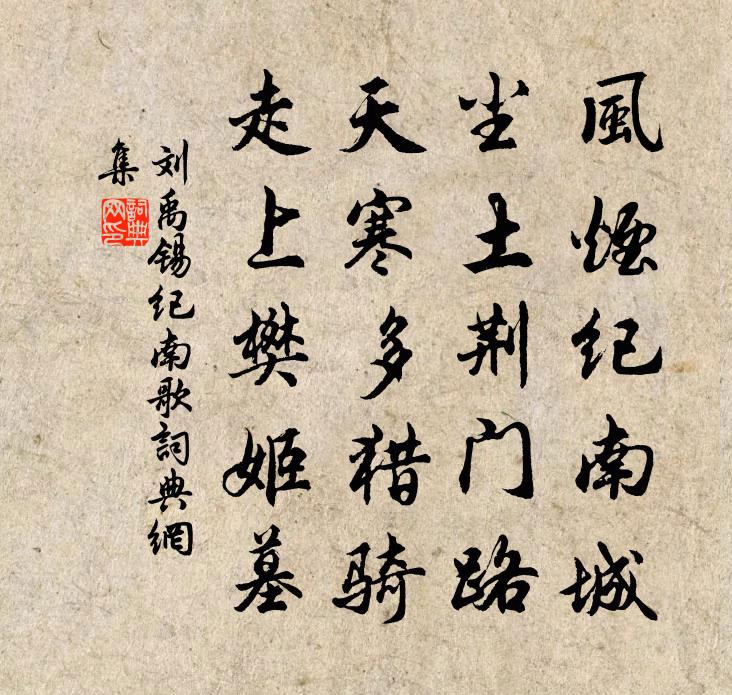 風煙紀南城
尘土荆门路
天寒多猎骑
走上樊姬墓
刘禹锡纪南歌詞典網
集
詞典
网印